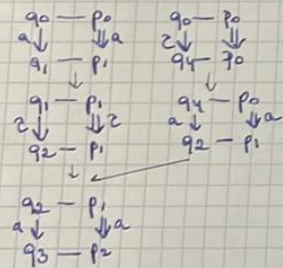 q0 — p0
a ⇓ ⇓ a
q1 — p1
q1 — p1
τ ⇓ ⇓ τ
q2 — p1
q2 — p1
a ↓ ⇓ a
q3 — p2
q0 — p0
τ ↓ ⇓
q4 — p0
q4 — p0
a ↓ ⇓ a
q2 — p1